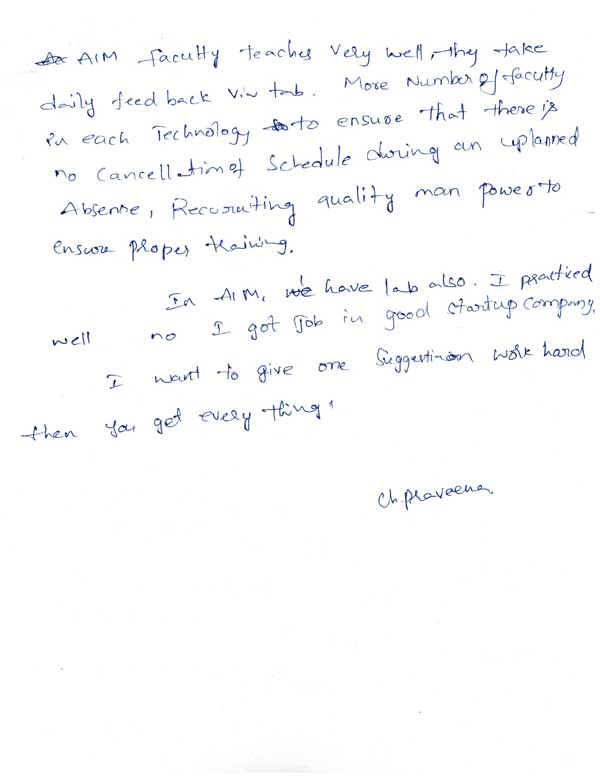 AIM faculty teaches very well, they take
daily feed back via tab. More Number of faculty
in each Technology to ensure that there is
no Cancellation of Schedule during an uplanned
Absense, Recruiting quality man power to
ensure proper training.
In AIM, we have lab also. I practiced
well no I got Job in good startup company,
I want to give one Suggestinon work hard
then you get every thing.
Ch.Praveena.